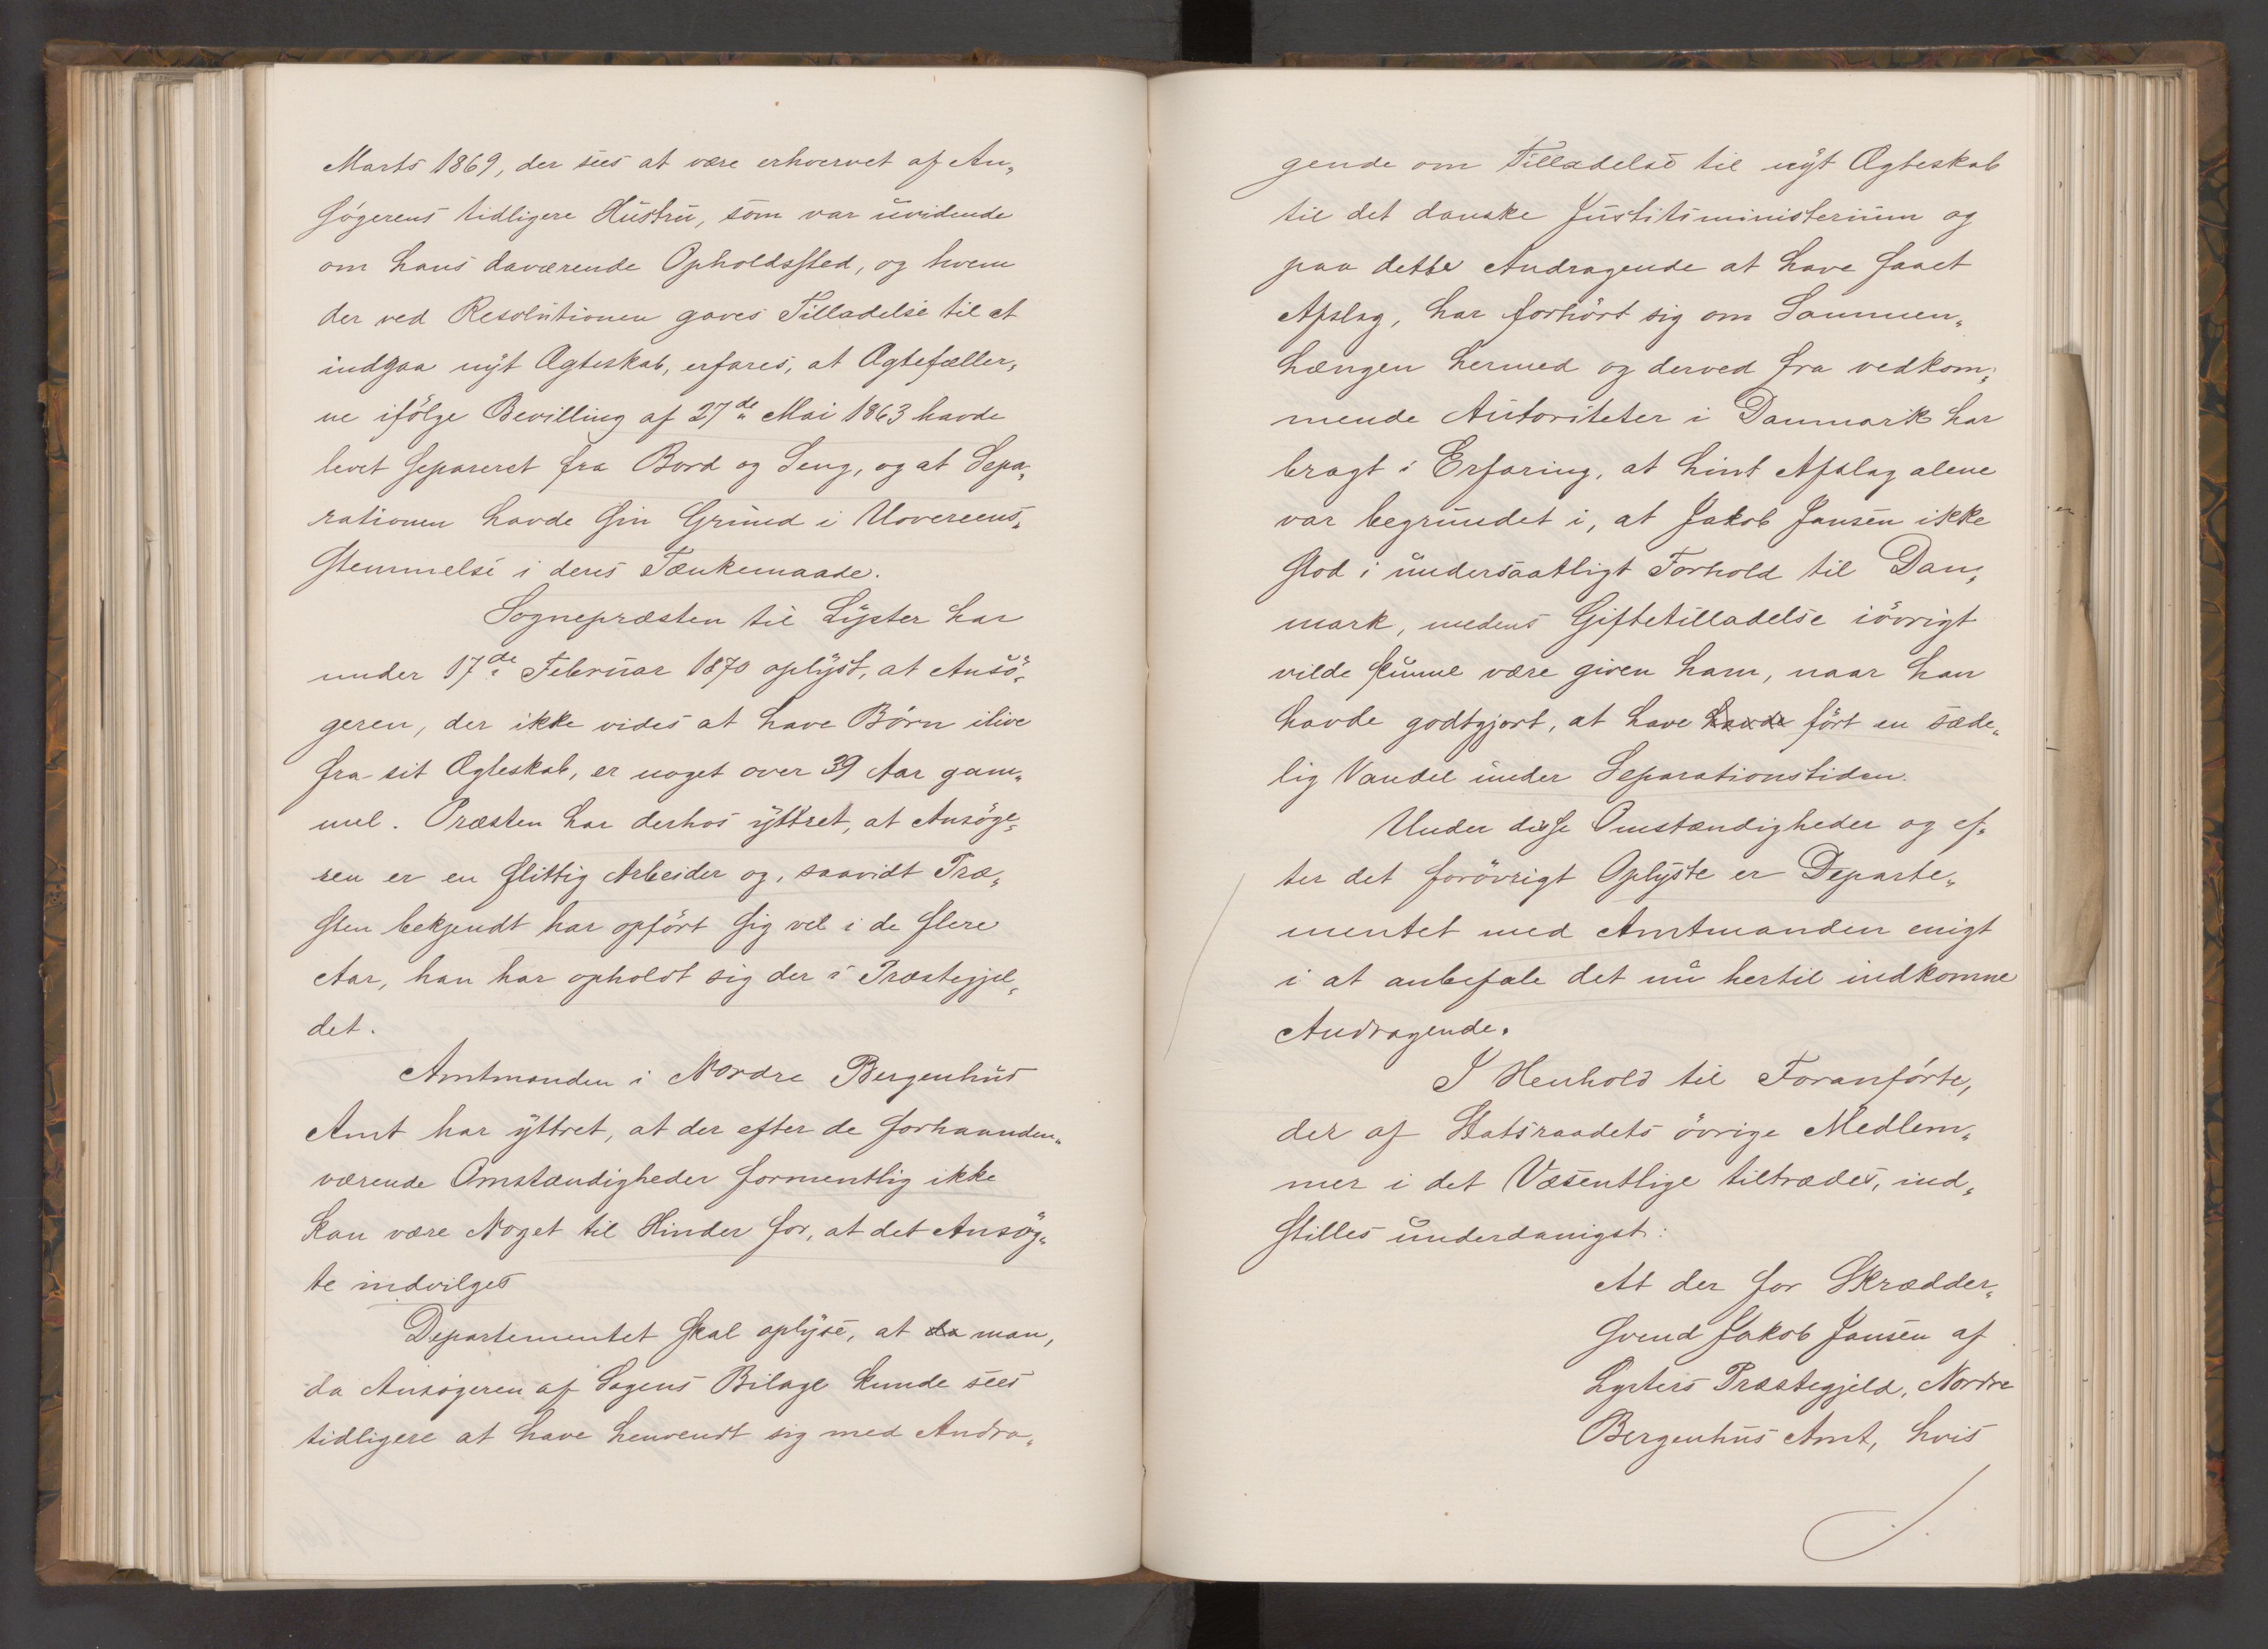 Marts 1869, der sees at være erhvervet af An„
søgerens tidligere Hustru, som var uvidende
om hans daværende Opholdssted, og hvem
der ved Resolutionen gaves Tilladelse til at
indgaa nyt Ægteskab, erfares, at Ægtefæller„
ne ifölge Bevilling af 27de Mai 1863 havde
levet separeret fra Bord og Seng, og at Sepa„
rationen havde sin Grund i Uovereens„
stemmelse i deres Tænkemaade.
Sognepræsten til Lyster har
under 17de Februar 1870 oplyst, at Ansö„
geren, der ikke vides at have Börn ilive
fra sit Ægteskab, er noget over 39 Aar gam„
mel. Præsten har derhos yttret, at Ansöge„
ren er en flittig Arbeider og, saavidt Præ„
sten bekjendt har opfört sig vel i de flere
Aar, han har opholdt sig der i Præstegjel„
det.
Amtmanden i Nordre Bergenhus
Amt har yttret, at der efter de forhaanden„
værende Omstændigheder formentlig ikke
kan være Noget til Hinder for, at det Ansög„
te indvilges
Departementet skal oplyse, at da man,
da Ansøgeren af Sagens Bilage kunde sees
tidligere at have henvendt sig med Andra„
gende om Tilladelse til nyt Ægteskab
til det danske Justitsministerium og
paa dette Andragende at have faaet
Afslag, har forhört sig om Sammen„
hængen hermed og derved fra vedkom„
mende Autoriteter i Danmark har
bragt i Erfaring, at hint Afslag alene
var begrundet i, at Jakob Jansen ikke
stod i undersaatligt Forhold til Dan„
mark, medens Giftetilladelse iövrigt
vilde kunne være given ham, naar han
havde godtgjort, at have havde fört en sæde„
lig Vandel under Separationstiden.
Under disse Omstændigheder og ef„
ter det forövrigt Oplyste er Departe„
mentet med Amtmanden enigt
i at anbefale det nu hertil indkomne
Andragende.
I Henhold til Foranförte,
der af Statsraadets övrige Medlem„
mer i det Væsentlige tiltrædes, ind„
stilles underdanigst:
At der for Skrædder„
svend Jakob Jansen af
Lysters Præstegjeld, Nordre
Bergenhus Amt, hvis